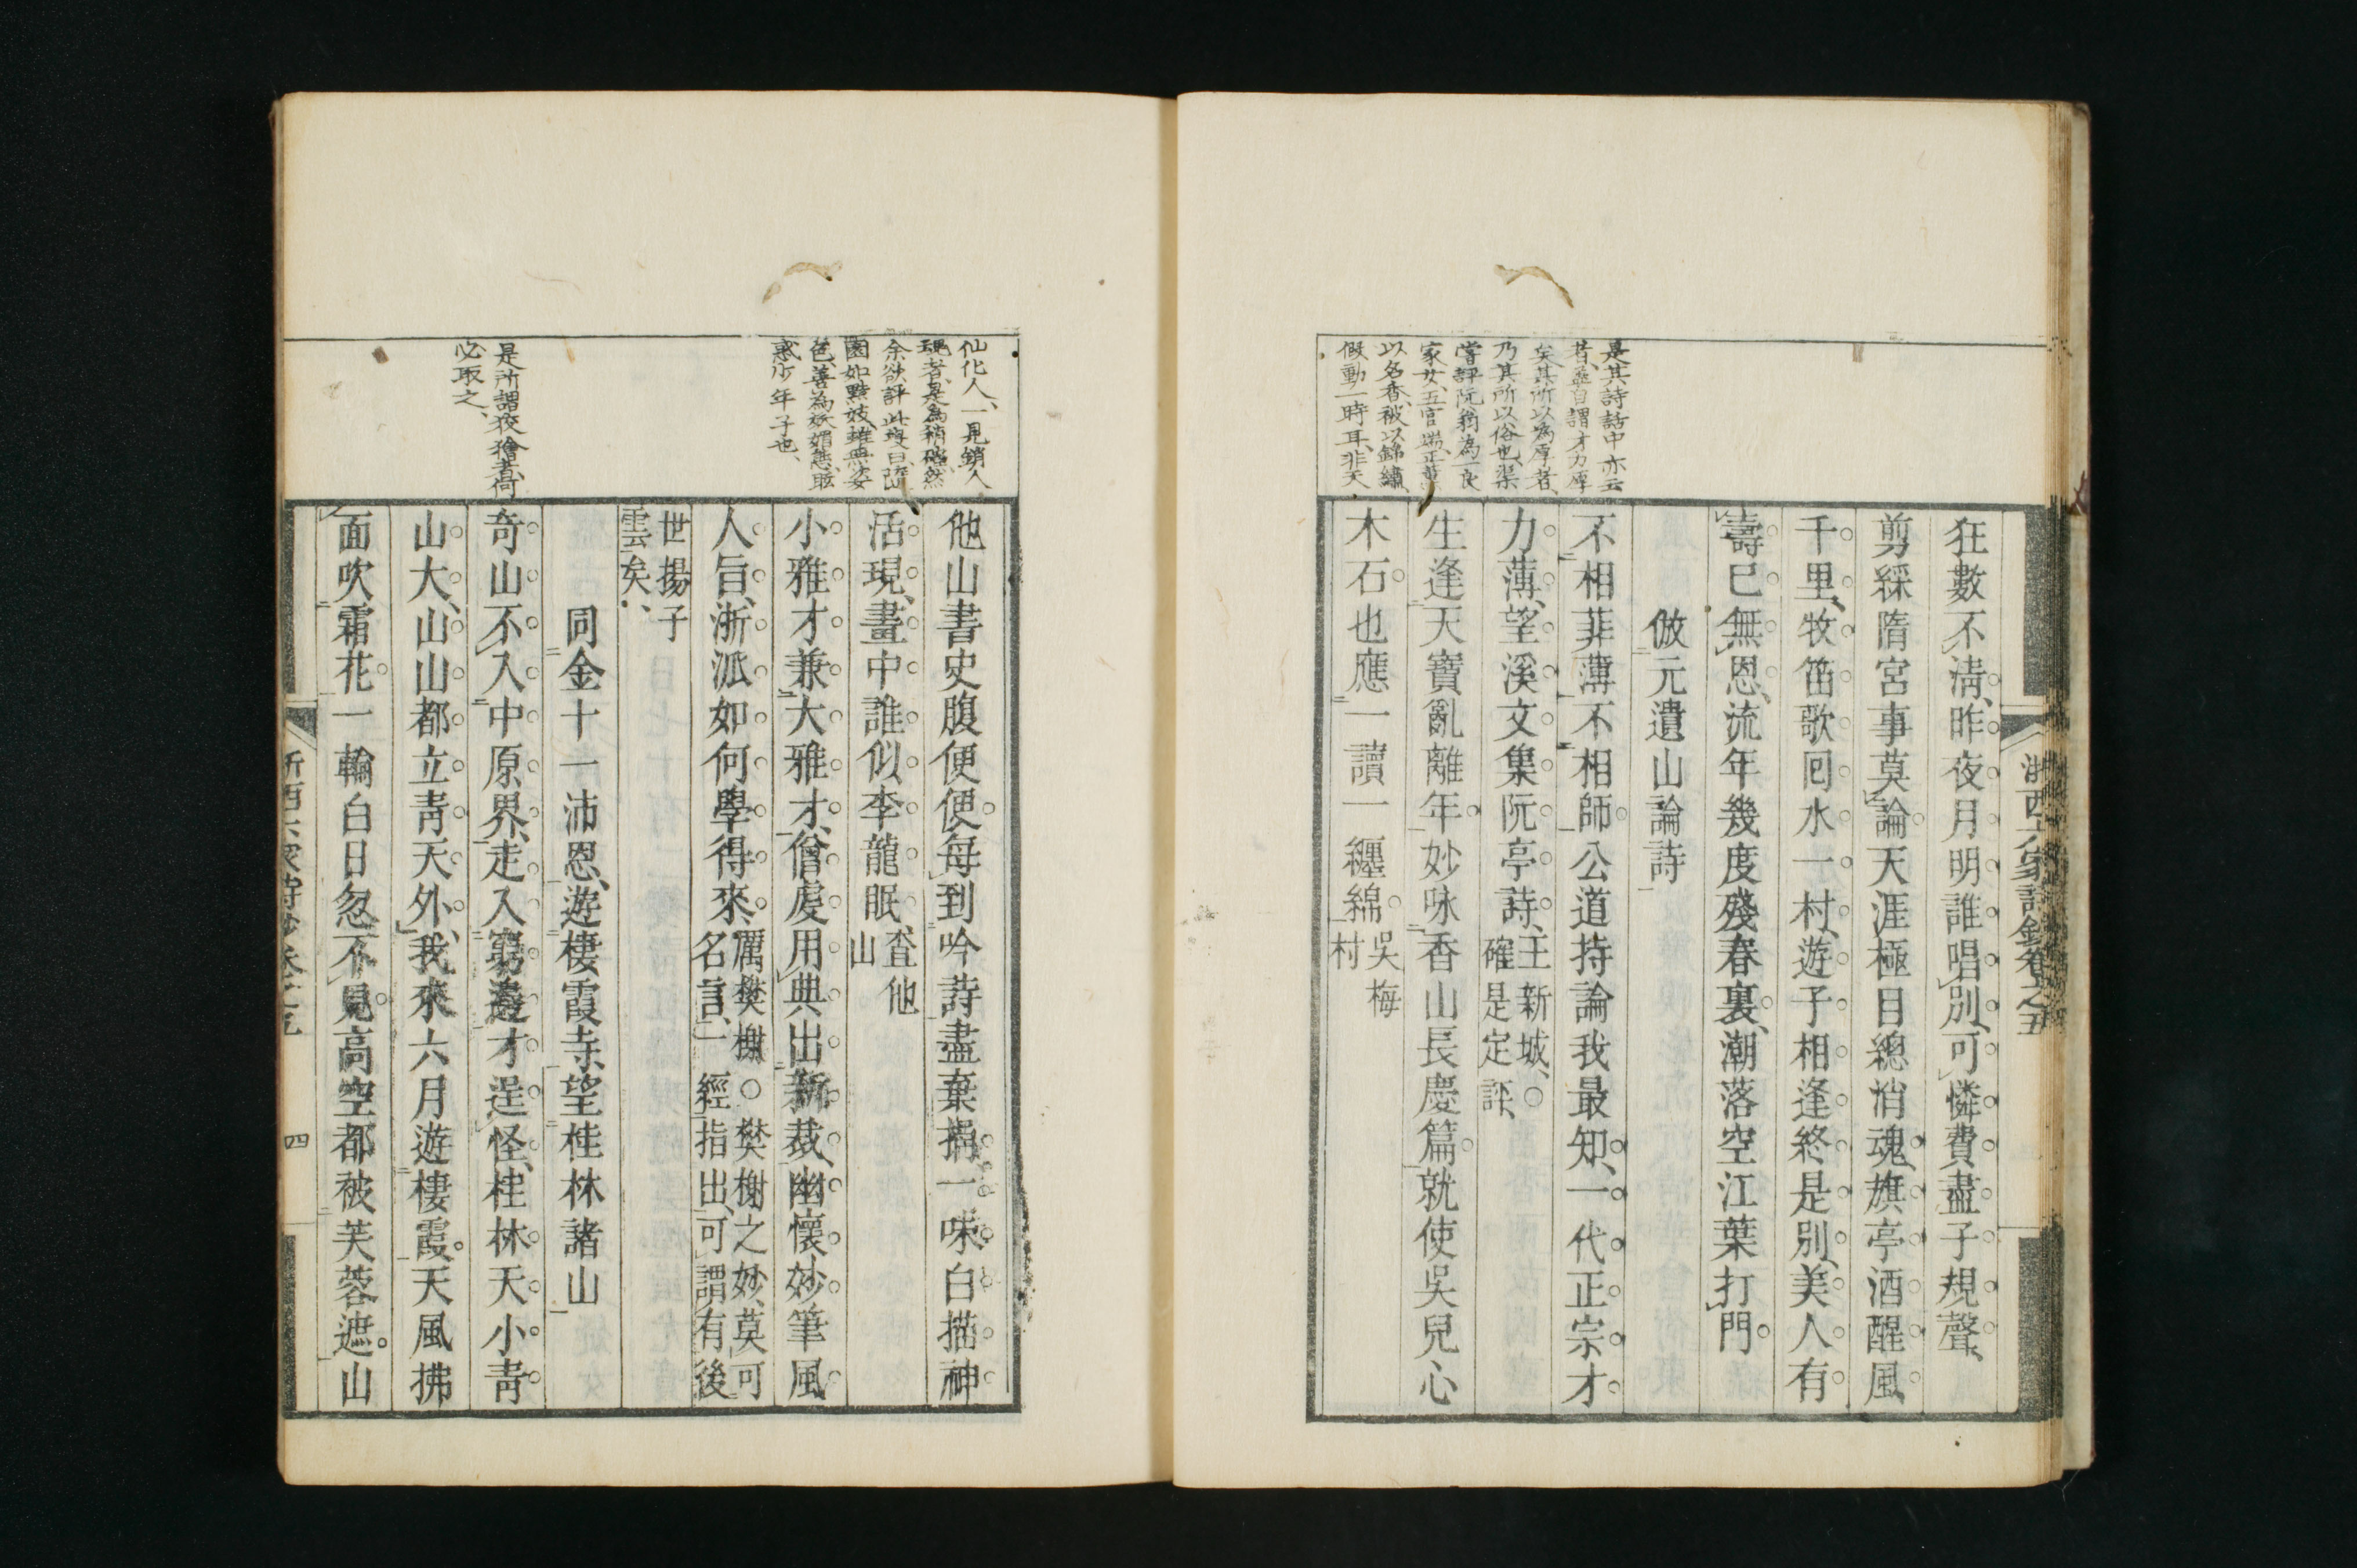 是其詩話中亦云
者、蓋自謂才力厚
矣、其所以為厚者、
乃其所以俗也、渠
嘗評阮翁為一良
家女、五官端正、薰
以名香、被以錦繡、
假動一時耳、非天
浙西六家詩鈔卷之五
狂數不淸、昨夜月明誰唱別、可憐費盡子規聲、
剪綵隋宮事莫論天涯極目總消魂、旗亭酒醒風
千里、牧笛歌回水一村、遊子相逢終是別、美人有
壽已無恩、流年幾度殘春裏、潮落空江葉打門
倣元遺山論詩
不相菲薄不相師公道持論我最知、一代正宗才
力薄、望溪文集阮亭詩、王新城、○
確是定評、
生逢天寶亂離年妙咏香山長慶篇就使吳兒心
木石也應一讀一纏綿吳梅
村
仙化人、一見銷人
魂者、是為稍磑然
余欲評此段曰、隨
園如點妓、雖無姿
色、善為妖媚態、眩
惑少年子也、
是所謂狡獪者、何
必取之、
他山書史腹便便每到吟詩盡棄捐一味白描神
活現、畫中誰似李龍眠、査他
山
小雅才兼大雅才、僧虔用典出新裁、幽懷妙筆風
人旨、浙派如何學得來、厲樊榭○樊榭之妙、莫可
名言、一經指出、可謂有後
世揚子
雲矣、
同金十一沛恩遊棲霞寺望桂林諸山
奇山不入中原界、走入窮邊才逞怪、桂林天小靑
山大、山山都立靑天外、我來六月遊棲霞、天風拂
面吹霜花一輪白日忽不見高空都被芙蓉遮山
浙西六家詩鈔卷之五
四